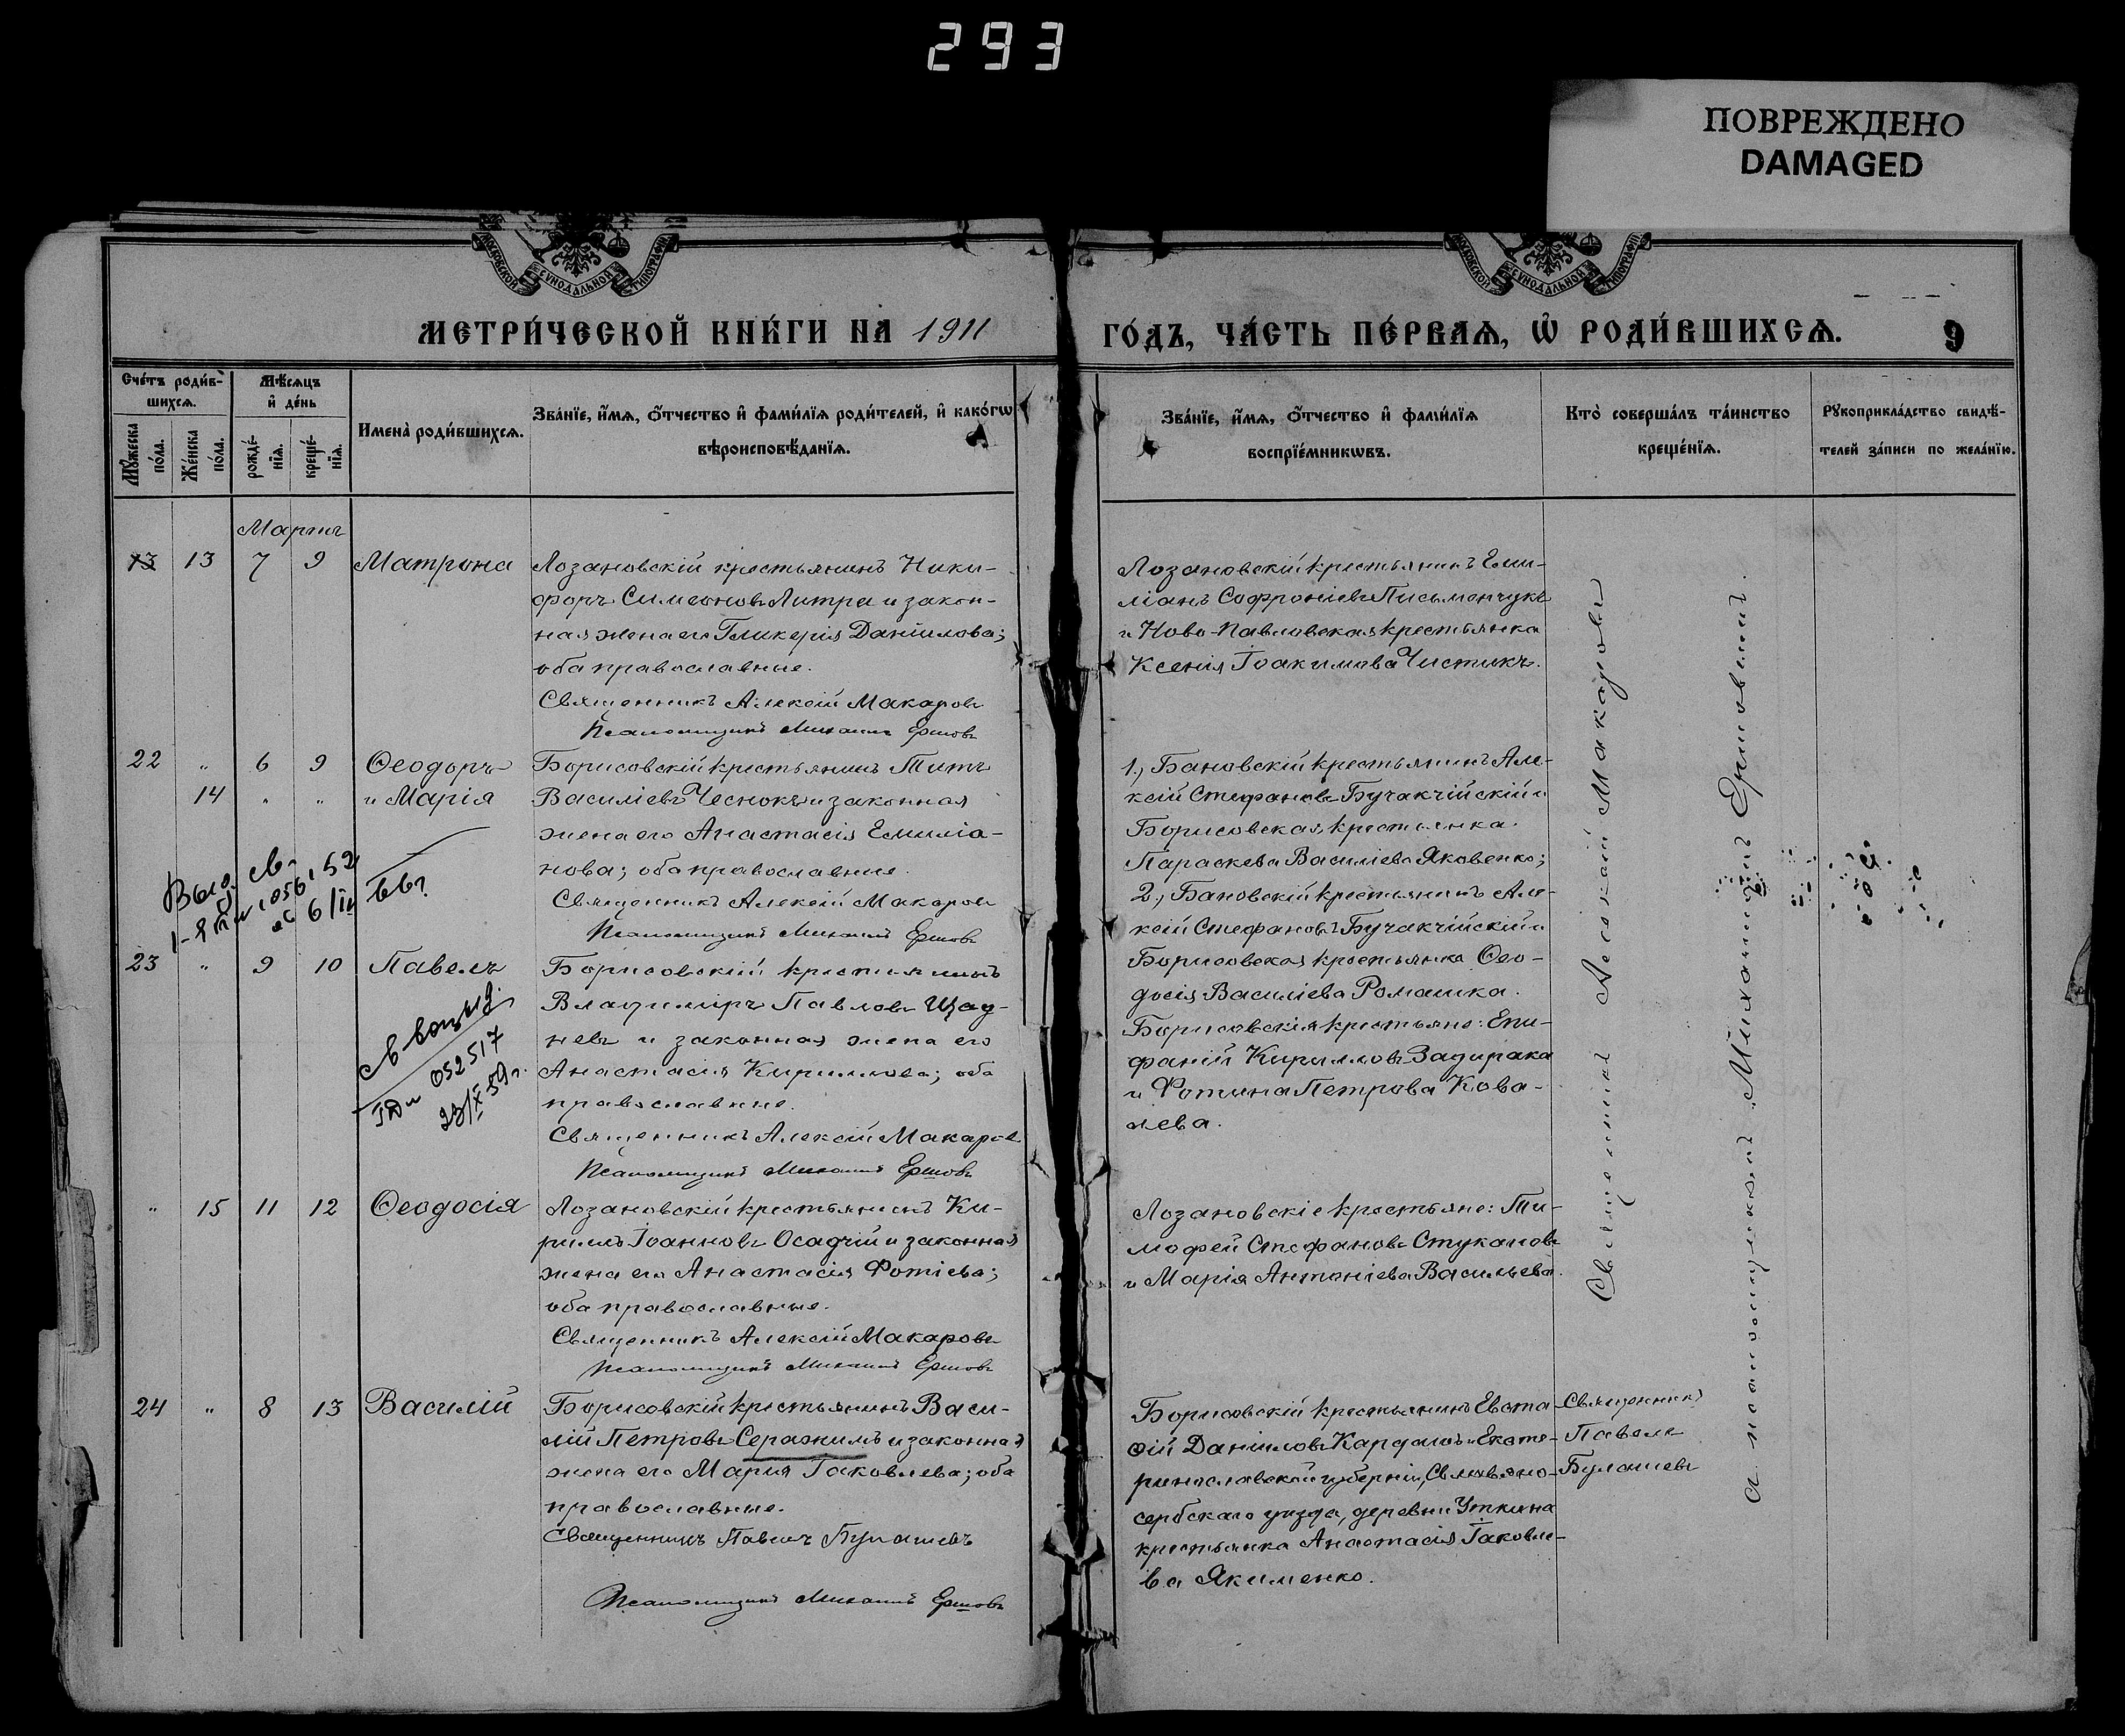 293
ПОВРЕЖДЕНО
DAMAGED
МОСКОВСКОЙ СѴНОДАЛЬНОЙ ТИПОГРАФІИ
МОСКОВСКОЙ СѴНОДАЛЬНОЙ ТИПОГРАФІИ
МЕТРИ́ЧЕСКОЙ КНИ́ГИ НА 1911
ГО́ДЪ, ЧА́СТЬ ПЕ́РВАѦ, Ѡ҆ РОДИ́ВШИХСѦ.
9
Сче́тъ роди́в-
шихсѧ.
Мꙋ́жеска по́ла.
Же́нска по́ла.
Мѣ́сѧцъ
и҆ де́нь
рожде́-
нїѧ.
креще́-
нїѧ.
Имена̀ роди́вшихсѧ.
Зва́нїе, и҆́мѧ, ѻ҆́тчество и҆ фами́лїѧ роди́телей, и҆ како́гѡ
вѣроисповѣ́данїѧ.
Зва́нїе, и҆́мѧ, ѻ҆́тчество и҆ фами́лїѧ
воспрїе́мникѡвъ.
Кто̀ соверша́лъ та́инство
креще́нїѧ.
Рꙋкоприкла́дство свидѣ́-
телей за́писи по жела́нїю.
Мартъ
13 13 7 9 Матрона
Лозановскій крестьянинъ Ники-
форъ Симеоновъ Литра и закон-
ная жена его Гликерія Даніилова;
оба православные.
Священникъ Алексій Макаровъ
Псаломщикъ Михаилъ Ершовъ
Лозановскій крестьянинъ Еми-
ліанъ Софроніевъ Письменчукъ
и Ново-Павловская крестьянка
Ксенія Іоакимова Чистикъ.
22 " 6 9 Ѳеодоръ
14 " " и Марія
Борисовскій крестьянинъ Титъ
Василіевъ Чеснокъ и законная
жена его Анастасія Емиліа-
нова; оба православные.
Священникъ Алексій Макаровъ
Псаломщикъ Михаилъ Ершовъ
1., Бановскій крестьянинъ Але-
ксій Стефановъ Бучакчійскій и
Борисовская крестьянка
Параскева Василіева Яковенко;
2., Бановскій крестьянинъ Але-
ксій Стефановъ Бучакчійскій и
Борисовская крестьянка Ѳео-
досія Василіева Ромашка.
23 " 9 10 Павелъ
052517
23/X-59 г.
Борисовскій крестьянинъ
Владиміръ Павловъ Щад-
невъ и законная жена его
Анастасія Кириллова; оба
православные.
Священникъ Алексій Макаровъ
Псаломщикъ Михаилъ Ершовъ
Борисовскія крестьяне: Епи-
фаній Кирилловъ Задирака
и Фотина Петрова Кова-
лева.
" 15 11 12 Ѳеодосія
Лозановскій крестьянинъ Ки-
риллъ Іоанновъ Осадчій и законная
жена его Анастасія Фотіева;
оба православные.
Священникъ Алексій Макаровъ
Псаломщикъ Михаилъ Ершовъ
Лозановскіе крестьяне: Ти-
мофей Стефановъ Стукановъ
и Марія Антоніева Васильева.
24 " 8 13 Василій
Борисовскій крестьянинъ Васи-
лій Петровъ Серажимъ и законная
жена его Марія Іаковлева; оба
православные.
Священникъ Павелъ Булашевъ
Псаломщикъ Михаилъ Ершовъ
Борисовскій крестьянинъ Евста-
ѳій Даніиловъ Кардашъ и Екате-
ринославской губерніи, Славяно-
сербскаго уѣзда, деревни Уткина
крестьянка Анастасія Іаковле-
ва Якименко.
Священникъ
Павелъ
Булашевъ
Священникъ Алексій Макаровъ
и псаломщикъ Михаилъ Ершовъ.